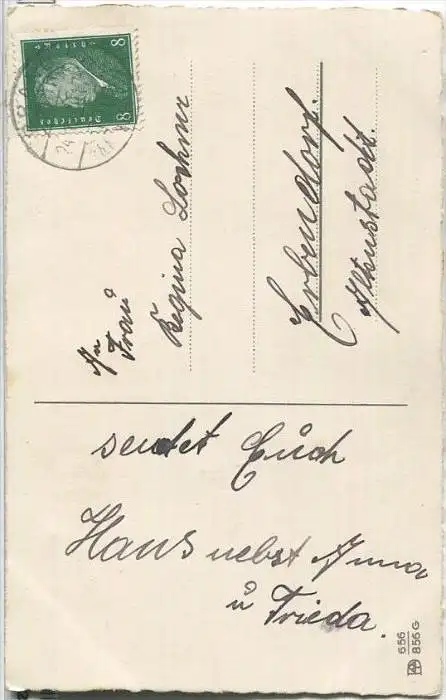 Deutsches
Reich
8
8
An
Frau
Regina Lochner
Erbendorf.
Altenstadt.
sendet Euch
Hans nebst Anna
u Frieda.
656
856 G